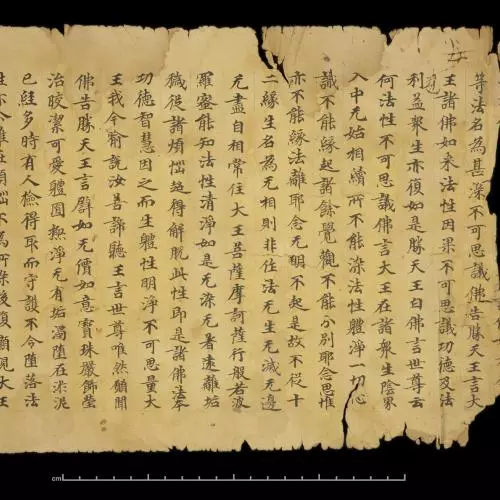 等法名為甚深不可思議佛告勝天王言大
王諸佛如來法性因果不可思議功德及法
利益衆生亦復如是勝天王白佛言世尊云
何法性不可思議佛言大王在諸衆生陰界
入中无始相續所不能染法性體淨一切心
識不能緣起諸餘覺觀不能分別耶念思惟
亦不能緣法離耶念无明不起是故不從十
二緣生名為无相則非住法无生无滅无邊
无盡自相常住大王菩薩摩訶薩行般若波
羅蜜能知法性清淨如是无染无著遠離垢
穢從諸煩惱超得解脫此性即是諸佛法本
功德智慧因之而生體性明淨不可思量大
王我今喻說汝善諦聽王言世尊唯然願聞
佛告勝天王言譬如无價如意寶珠嚴飾瑩
治皎潔可愛體圓極淨无有垢濁墮在淤泥
已經多時有人檢得取而守護不令墮落法
雖在煩惱不為所染後復顯現大王
cm